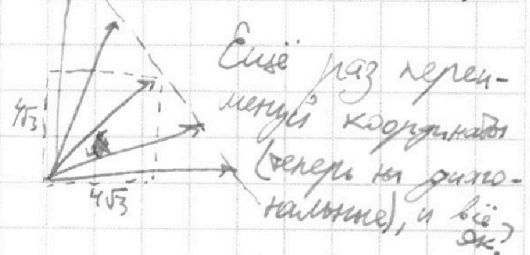 Ещё раз переи-
менуй координаты
(теперь на диаго-
нальные), и всё
ок?
4√3
4√3